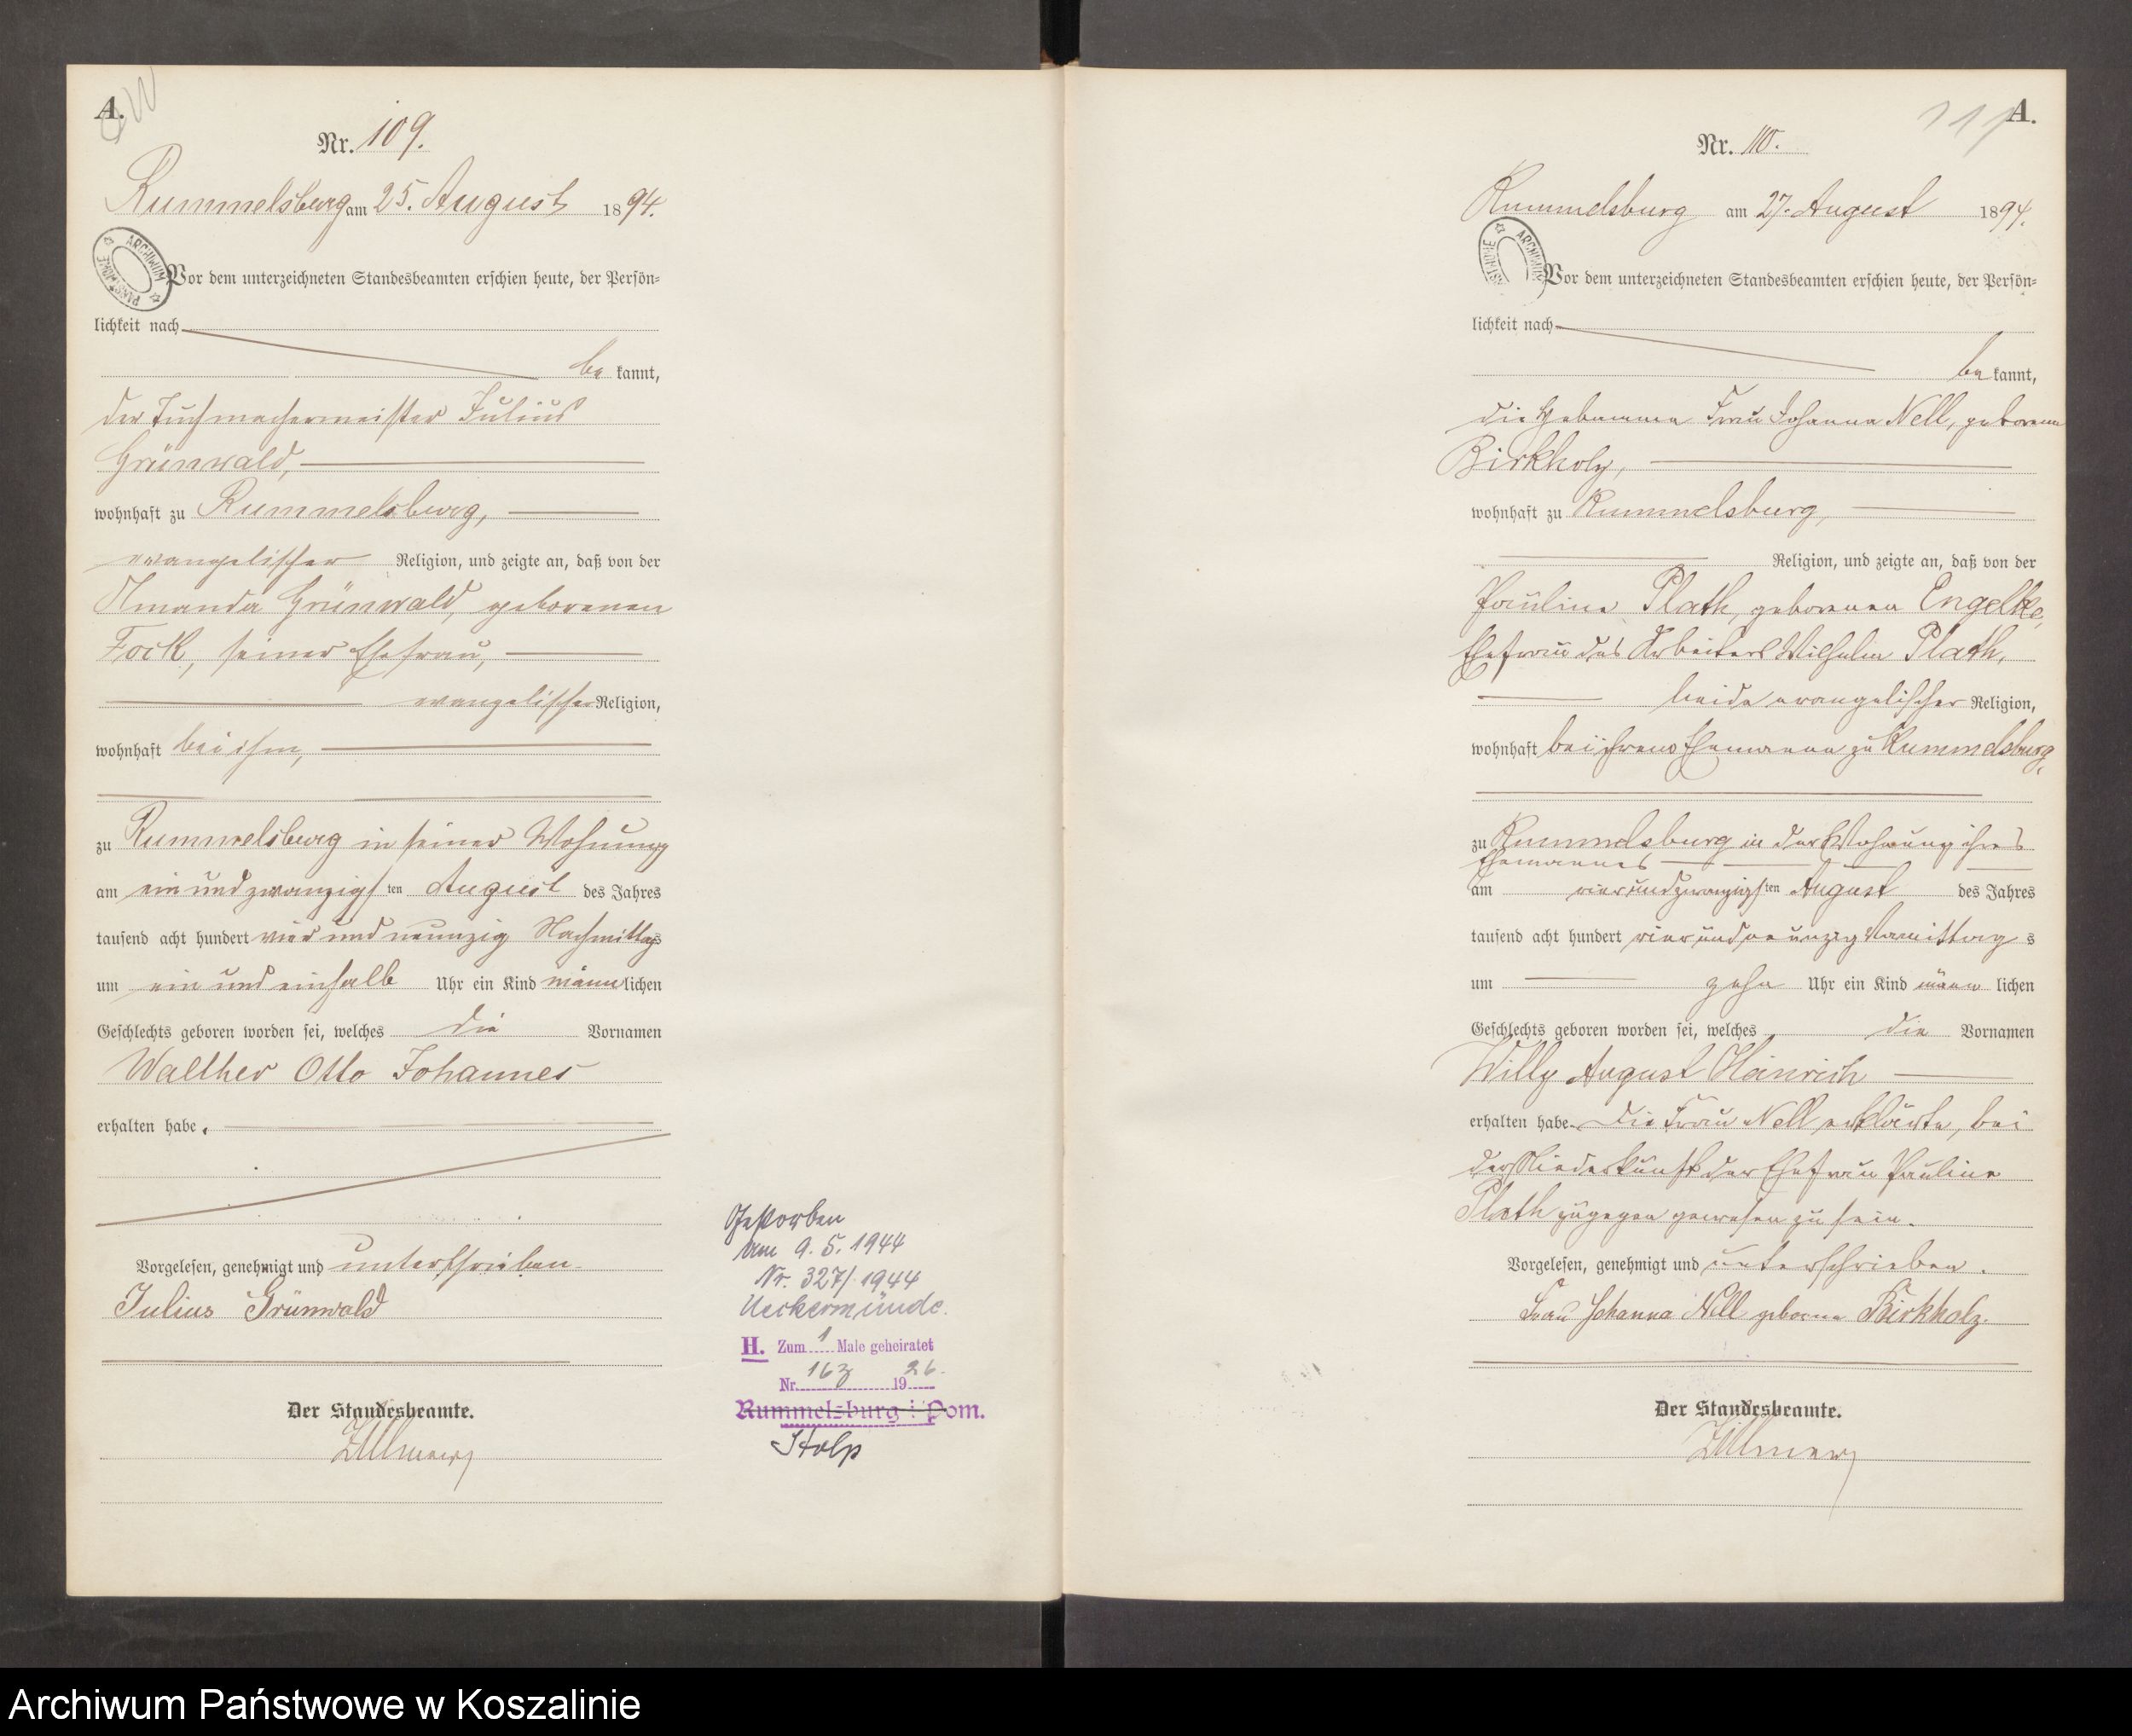 A.
Nr. 109.
Rummelsburg am 25. August 1894.
Vor dem unterzeichneten Standesbeamten erschien heute, der Persön-
lichkeit nach
be kannt,
der Tuchmachermeister Julius
Grünwald,
wohnhaft zu Rummelsburg,
evangelischer Religion, und zeigte an, daß von der
Amanda Grünwald, geborenen
Fock, seiner Ehefrau,
evangelischer Religion,
wohnhaft bei ihm,
zu Rummelsburg in seiner Wohnung
am ein und zwanzigsten August des Jahres
tausend acht hundert vier und neunzig Nachmittags
um ein und einhalb Uhr ein Kind männlichen
Geschlechts geboren worden sei, welches die Vornamen
Walther Otto Johannes
erhalten habe.
Vorgelesen, genehmigt und unterschrieben.
Julius Grünwald
Der Standesbeamte.
Zillmer
Gestorben
am 9. 5. 1944
Nr. 327/1944
Ueckermünde.
H. Zum 1 Male geheiratet
Nr. 163 1926.
Rummelsburg i. Pom.
Stolp
A.
Nr. 110.
Rummelsburg am 27. August 1894.
Vor dem unterzeichneten Standesbeamten erschien heute, der Persön-
lichkeit nach
be kannt,
die Hebamme Frau Johanna Nell, geborene
Birkholz,
wohnhaft zu Rummelsburg,
Religion, und zeigte an, daß von der
Pauline Plath, geborenen Engelke,
Ehefrau des Arbeiters Wilhelm Plath,
beide evangelischer Religion,
wohnhaft bei ihrem Ehemanne zu Rummelsburg,
zu Rummelsburg in der Wohnung ihres
Ehemannes
am vier und zwanzigsten August des Jahres
tausend acht hundert vier und neunzig Vormittags
um zehn Uhr ein Kind männlichen
Geschlechts geboren worden sei, welches die Vornamen
Willy August Heinrich
erhalten habe. Die Frau Nell erklärte, bei
der Niederkunft der Ehefrau Pauline
Plath zugegen gewesen zu sein.
Vorgelesen, genehmigt und unterschrieben.
Frau Johanna Nell geborne Birkholz.
Der Standesbeamte.
Zillmer
Archiwum Państwowe w Koszalinie